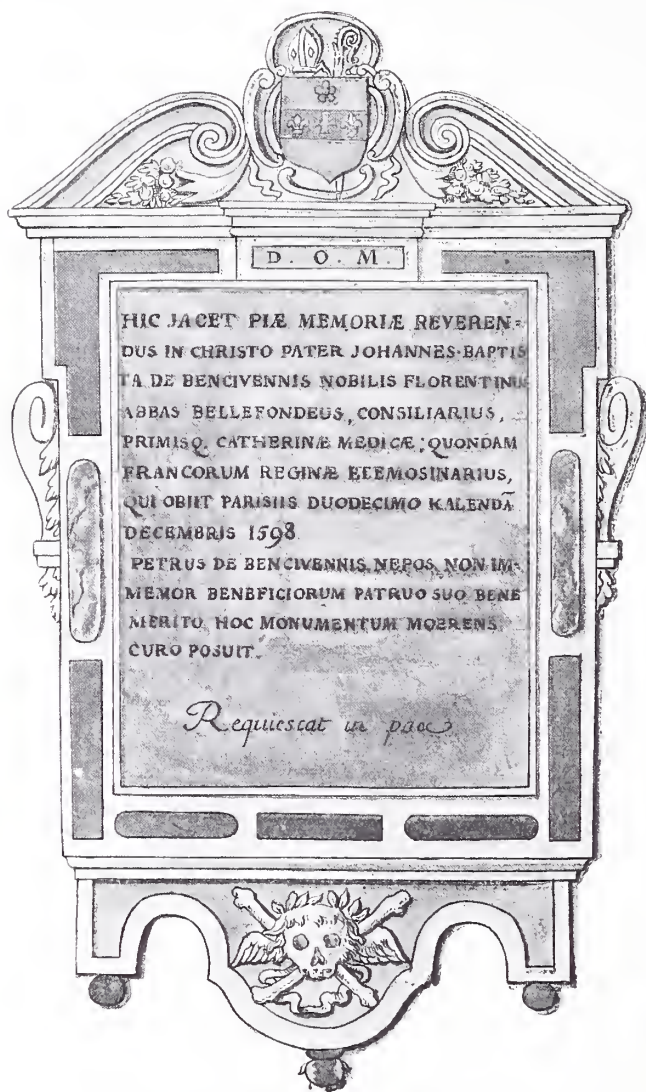 D. O. M.
HIC JACET PIÆ MEMORIÆ REVEREN=
DUS IN CHRISTO PATER JOHANNES·BAPTIS
TA DE BENCIVENNIS NOBILIS FLORENTINUS
ABBAS BELLEFONDEUS, CONSILIARIUS,
PRIMISQ. CATHERINÆ MEDICÆ, QUONDAM
FRANCORUM REGINÆ ELEMOSINARIUS,
QUI OBIIT PARISIIS DUODECIMO KALENDÃ
DECEMBRIS 1598
PETRUS DE BENCIVENNIS, NEPOS, NON IM-
MEMOR BENEFICIORUM PATRUO SUO BENE
MERITO, HOC MONUMENTUM MOERENS
CURO POSUIT.
Requiescat in pace